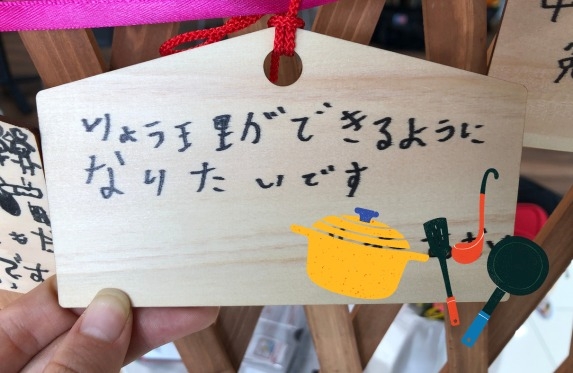 りょう理ができるように
なりたいです